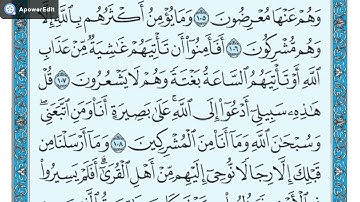 ApowerEdit
وَهُمْ عَنْهَا مُعْرِضُونَ ١٠٥ وَمَا يُؤْمِنُ أَكْثَرُهُم بِٱللَّهِ إِلَّا
وَهُم مُّشْرِكُونَ ١٠٦ أَفَأَمِنُوٓا۟ أَن تَأْتِيَهُمْ غَٰشِيَةٌ مِّنْ عَذَابِ
ٱللَّهِ أَوْ تَأْتِيَهُمُ ٱلسَّاعَةُ بَغْتَةً وَهُمْ لَا يَشْعُرُونَ ١٠٧ قُلْ
هَٰذِهِۦ سَبِيلِىٓ أَدْعُوٓا۟ إِلَى ٱللَّهِ عَلَىٰ بَصِيرَةٍ أَنَا۠ وَمَنِ ٱتَّبَعَنِى
وَسُبْحَٰنَ ٱللَّهِ وَمَآ أَنَا۠ مِنَ ٱلْمُشْرِكِينَ ١٠٨ وَمَآ أَرْسَلْنَا مِن
قَبْلِكَ إِلَّا رِجَالًا نُّوحِىٓ إِلَيْهِم مِّنْ أَهْلِ ٱلْقُرَىٰٓ أَفَلَمْ يَسِيرُوا۟